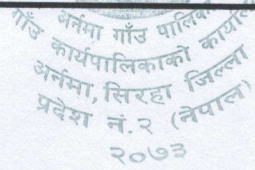 अर्नमा गाँउ पालिका
गाँउ कार्यपालिकाको कार्यालय
अर्नमा, सिरहा जिल्ला
प्रदेश नं.२ (नेपाल)
२०७३